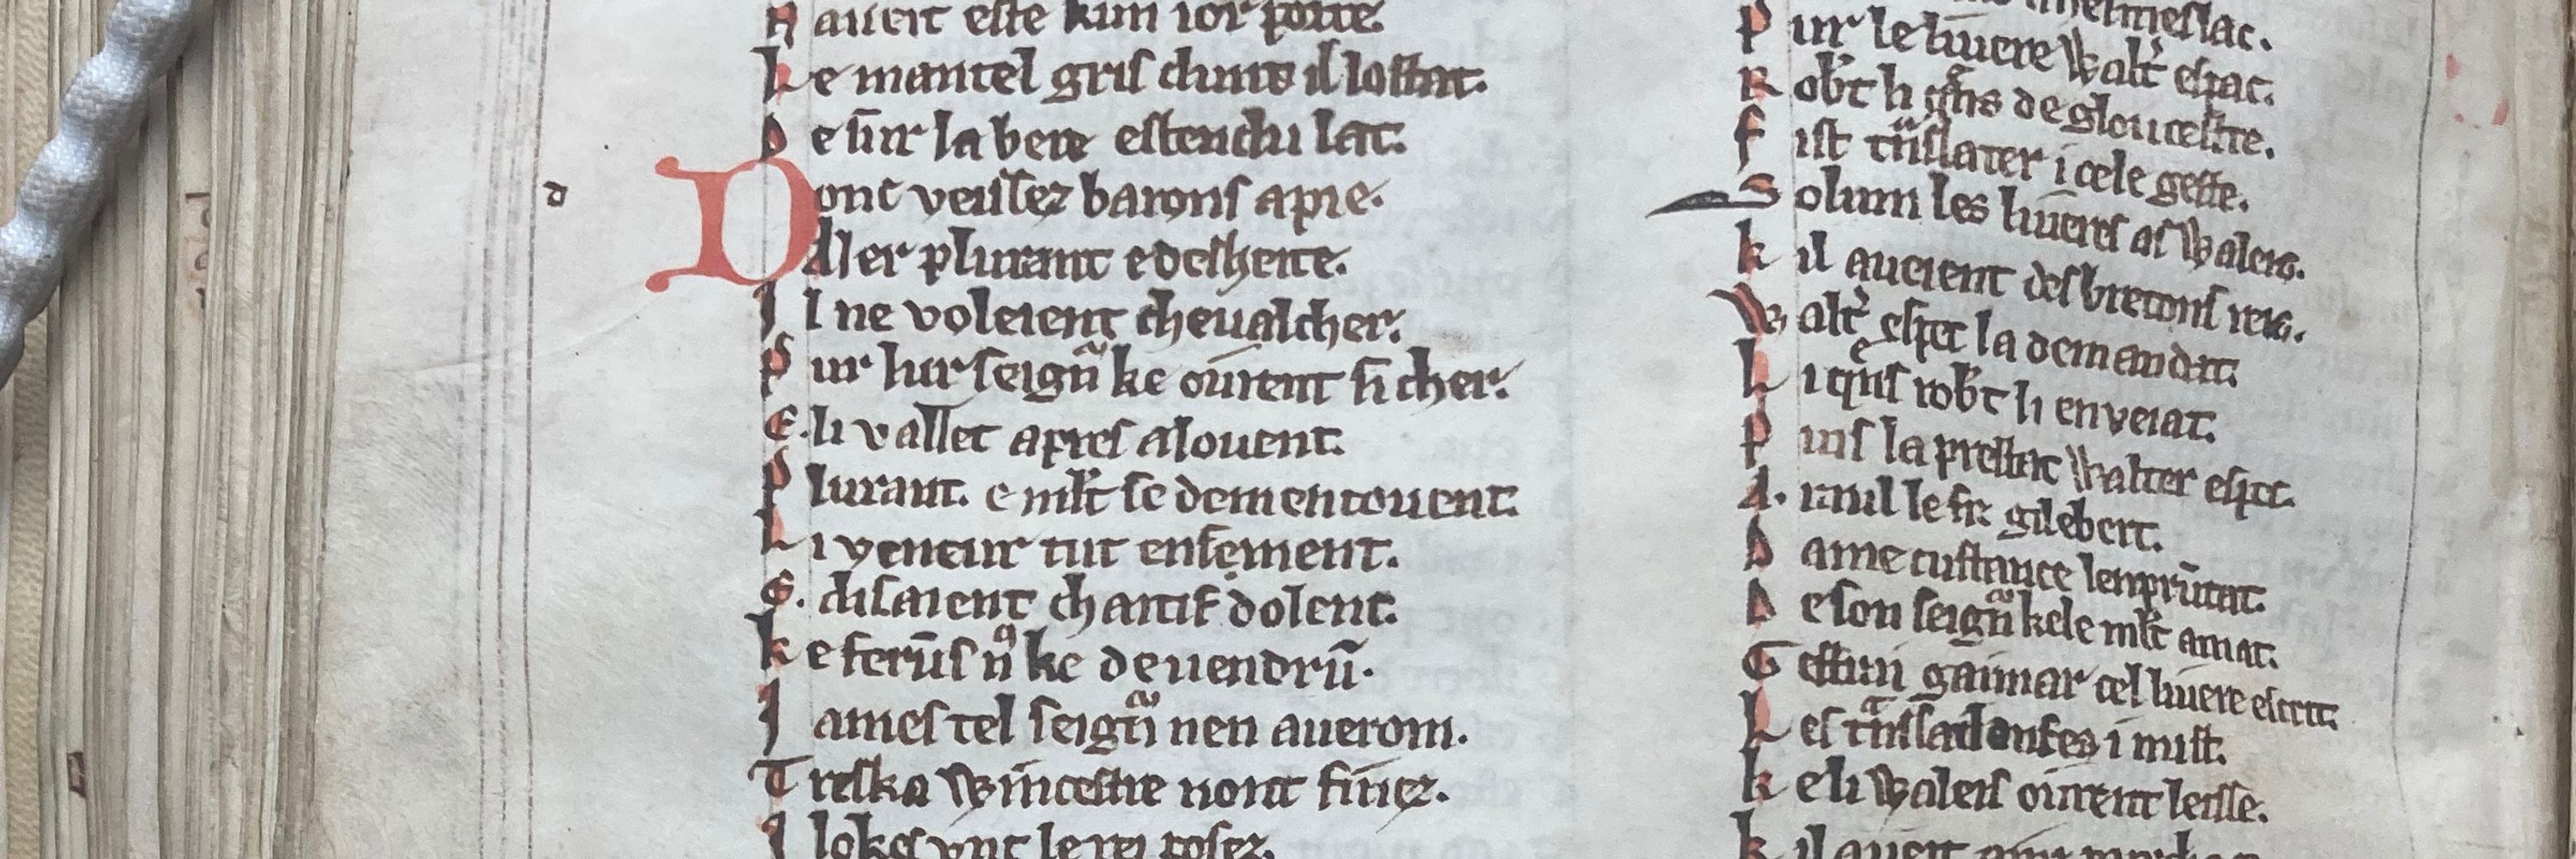 N aueit este kun ior porte.
L e mantel gris dunt il lostat.
D e sur la bere estendu lat.
d
Donc veissez barons a pie.
Aller plurant e deshete.
I l ne voleient cheualcher.
P ur lur seign ke ourent si cher.
E. li vallet apres alouent.
P lurant. e mlt se dementouent.
L i veneur tut ensement.
E. disaient chaitif dolent.
k e ferūs n9 ke deuendrū.
I ames tel seign nen auerom.
T reska Wincestre nont finez.
I lokes unt le rei posez.
P ur le liuere Walt espac.
R obt li quns de gloucestre.
F ist tnslater icele geste.
S olum les liueres as Waleis.
k il aueient des bretons reis.
W alt espec la demandat.
L i quns robt li enveiat.
P uis la prestat Walter espec.
A. raul le fiz gilebert.
D ame custance lenprūtat.
D e son seign kele mlt amat.
G effrai gaimar cel liuere escrit.
L es tnssadances i mist.
k e li Waleis ourent leisse.
k il aueit